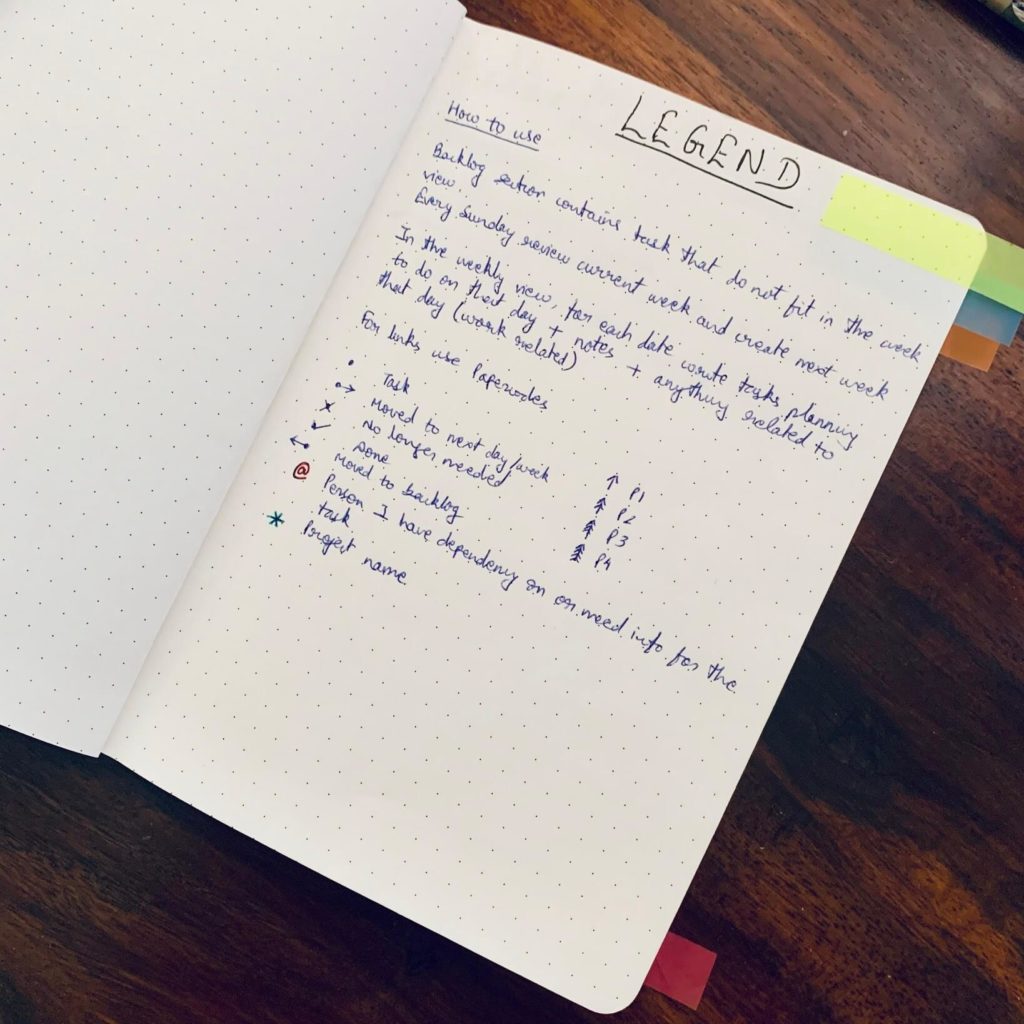 LEGEND
How to use
Backlog section contains task that do not fit in the week
view.
Every Sunday review current week and create next week
In the weekly view, for each date write tasks planning
to do on that day + notes + anything related to
that day (work related)
For links use Papernodes
• Task
•→ Moved to next day/week
x No longer needed
✓ Done
←• Moved to backlog
@ Person I have dependency on or need info for the
task
* Project name
↑ P1
P2
P3
P4